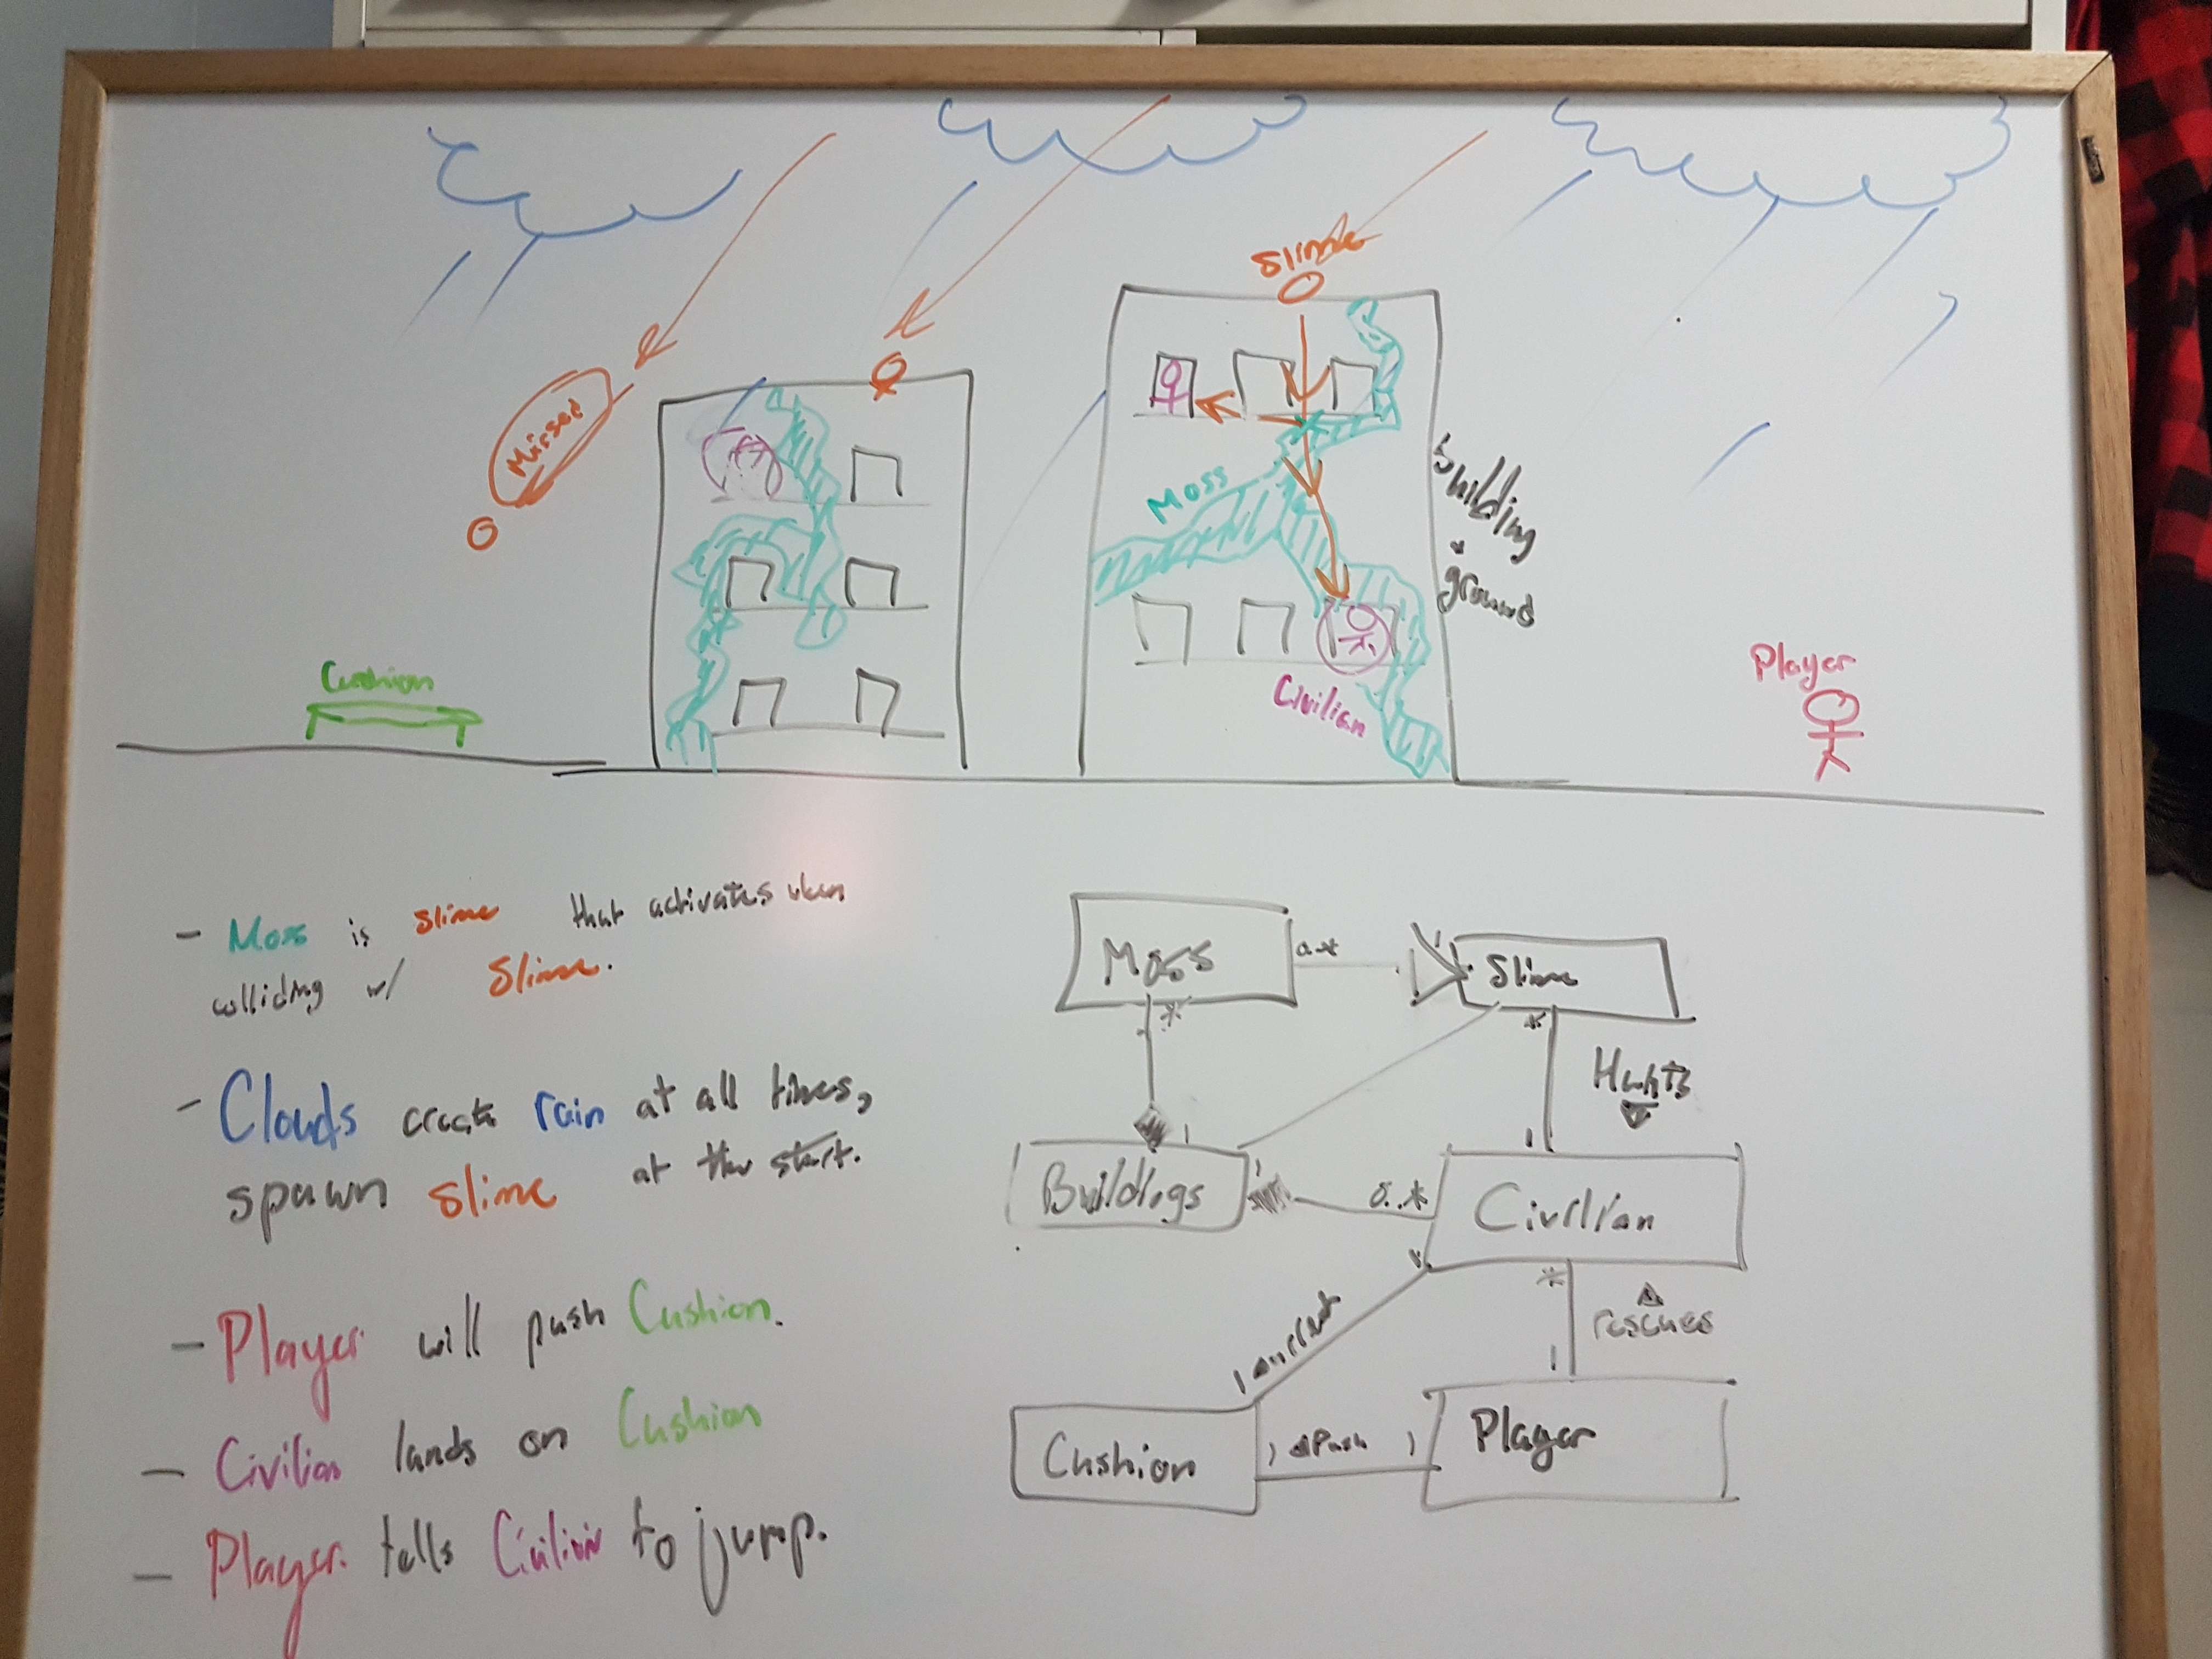 Slime
Missed
Moss
building
+
ground
Cushion
Civilian
Player
- Moss is slime that activates when
colliding w/ Slime.
- Clouds create rain at all times,
spawn slime at the start.
- Player will push Cushion.
- Civilian lands on Cushion
- Player tells Civilian to jump.
Moss
0..*
Slime
*
*
Hunts
1
1
Buildings
1
0..*
Civilian
*
*
rescues
1
1
Cushion
1
Push
1
Player